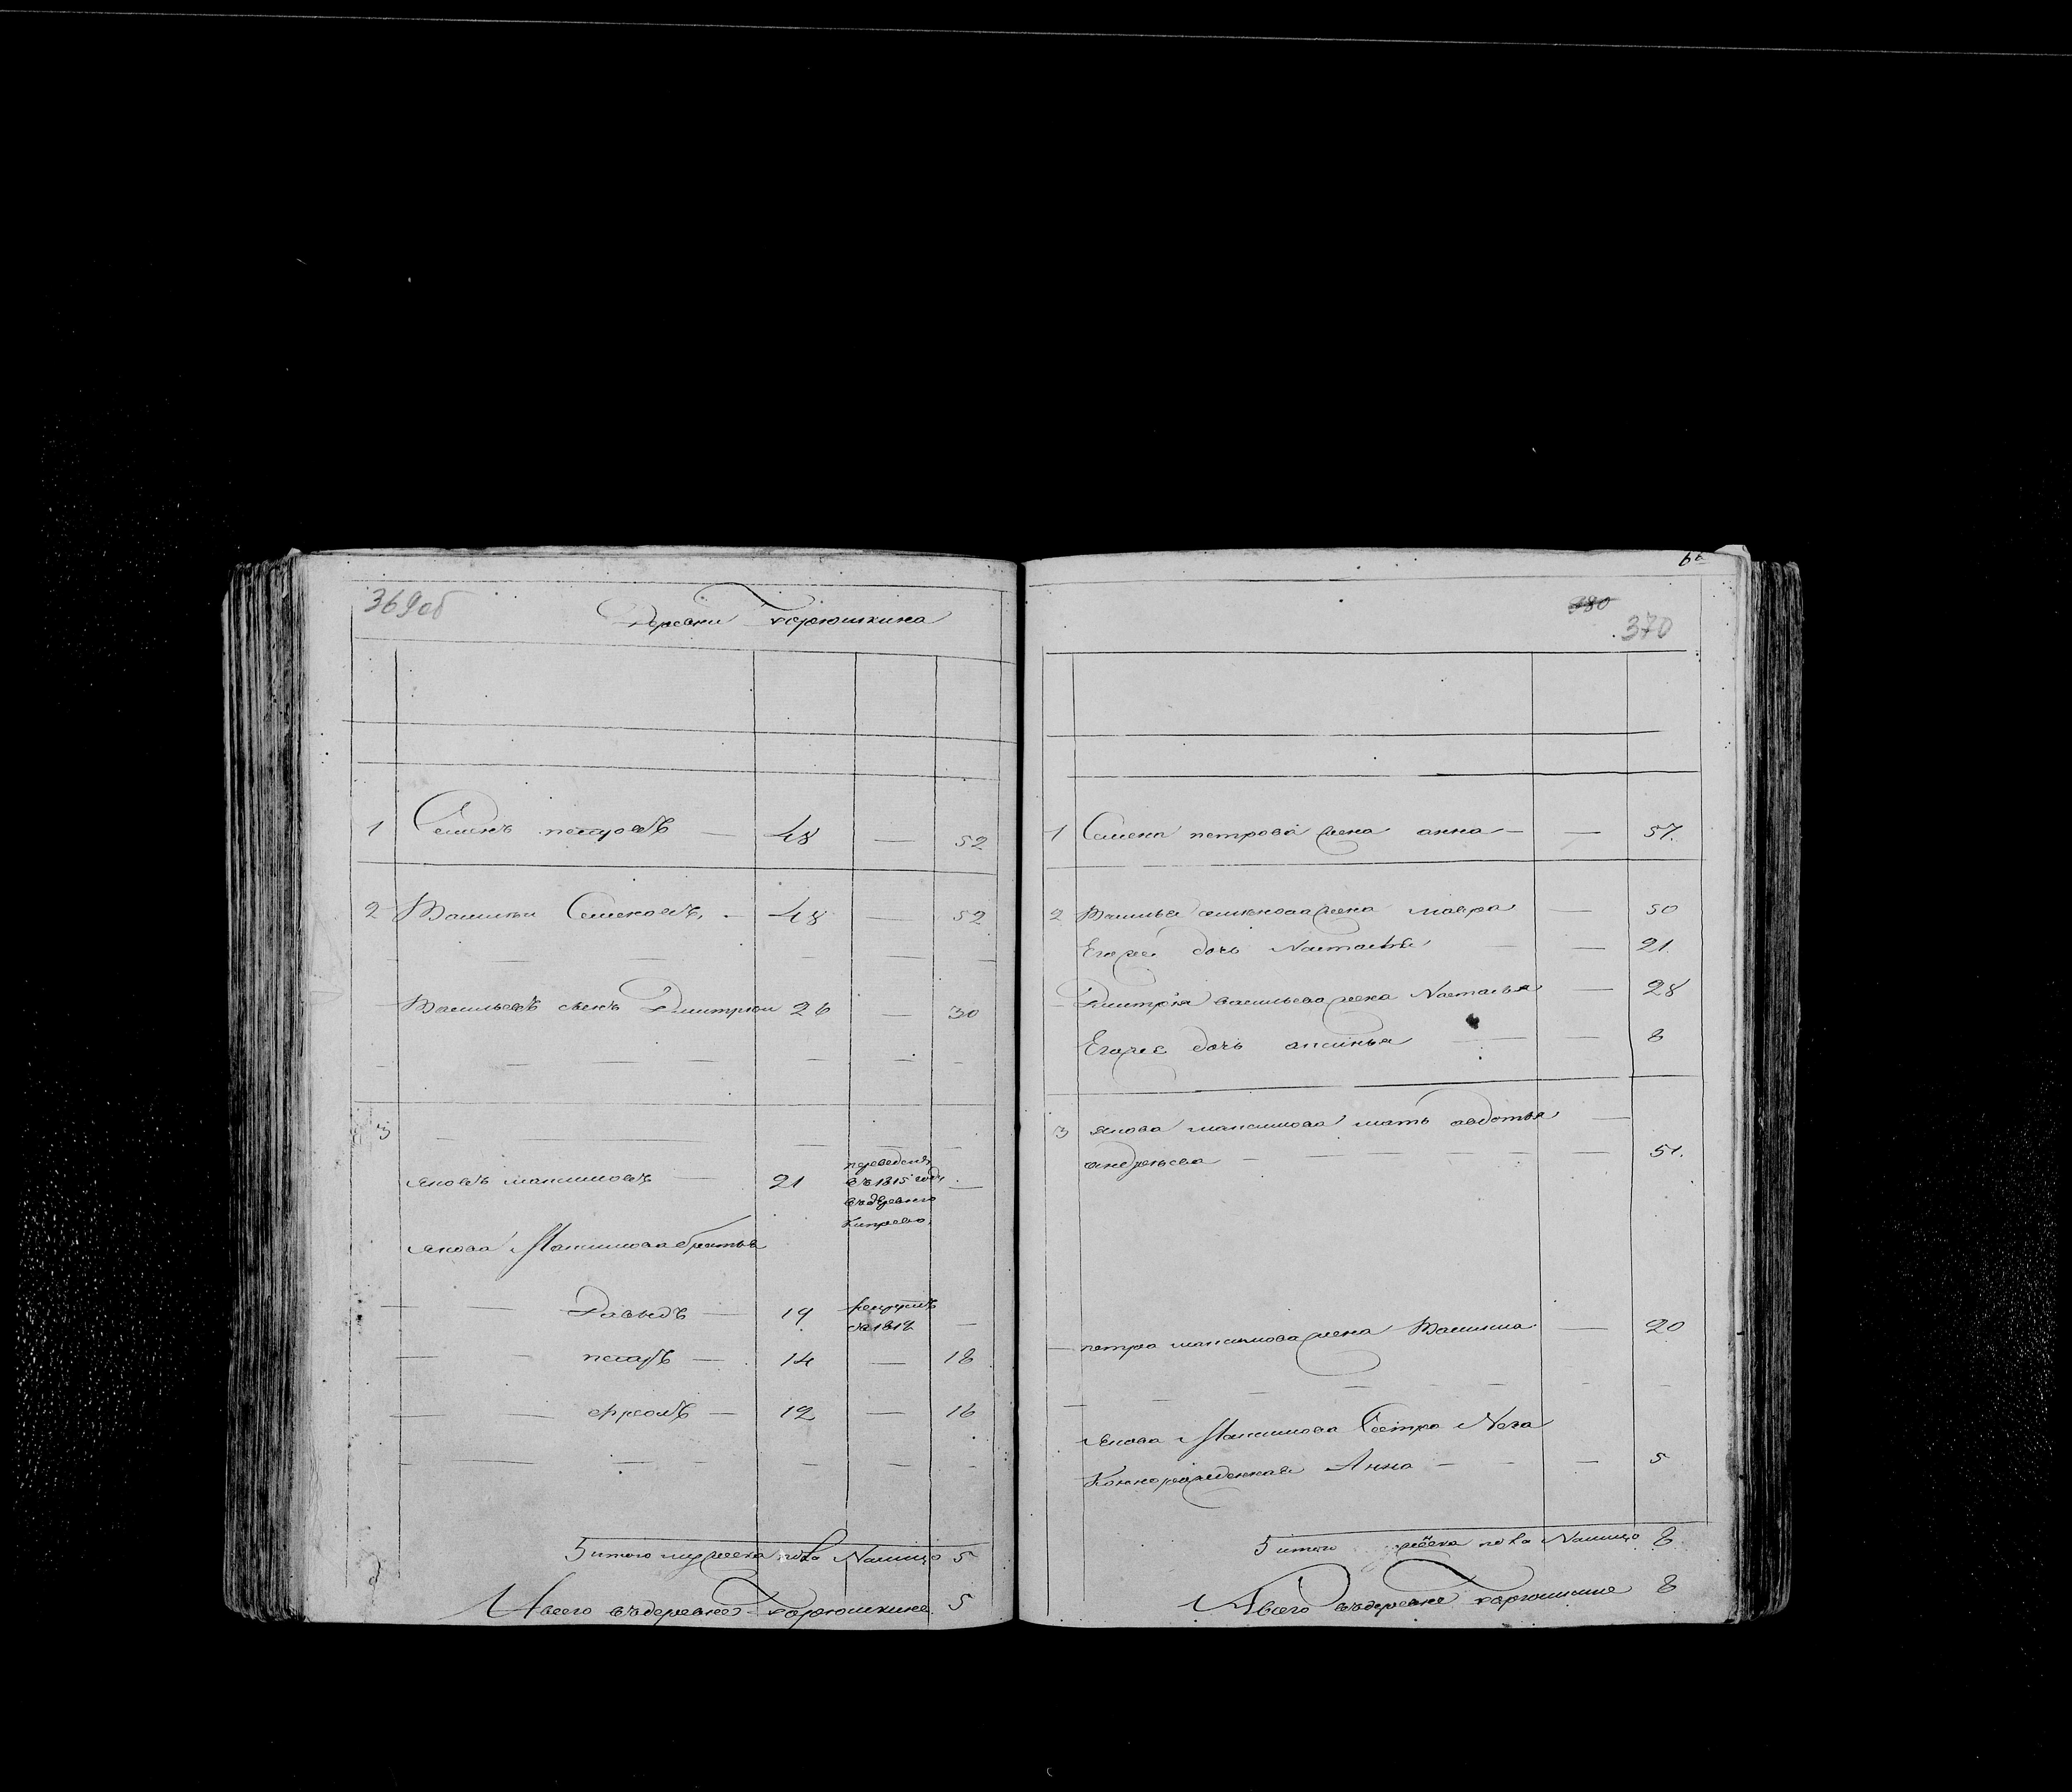 369об
Деревни Горюшкина
1 Семенъ петровъ — 48 — 52
2 Василеи Семеновъ — 48 — 52
Васильевъ сынъ Дмитреи 26 — 30
3
Яковъ максимовъ — 21 переведенъ —
въ 1815 году
въ деревню
Якова Максимова братья
Давыдъ — 19 рекрутъ —
въ 1812
петръ — 14 — 18
ефремъ — 12 — 16
5 итого мужеска пола Налицо 5
И всего въ деревне Горюшкине 5
380
370
1 Семена петрова жена анна — — 57.
2 Василья семенова жена мавра — 50
Егоже дочь Настасья — 21.
Дмитрея васильева жена Настасья — 28
Егоже дочь аксинья — 8
3 якова максимова мать авдотья —
андреева — 51.
петра максимова жена Василиса — 20
Якова Максимова Сестра Неза
Коннорожденная Анна — 5
5 итого женска пола Налицо 8
И всего въ деревне горюшкине 8